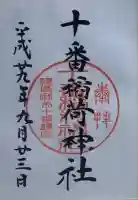 奉拝
十番稲荷神社
平成廿九年九月廿三日